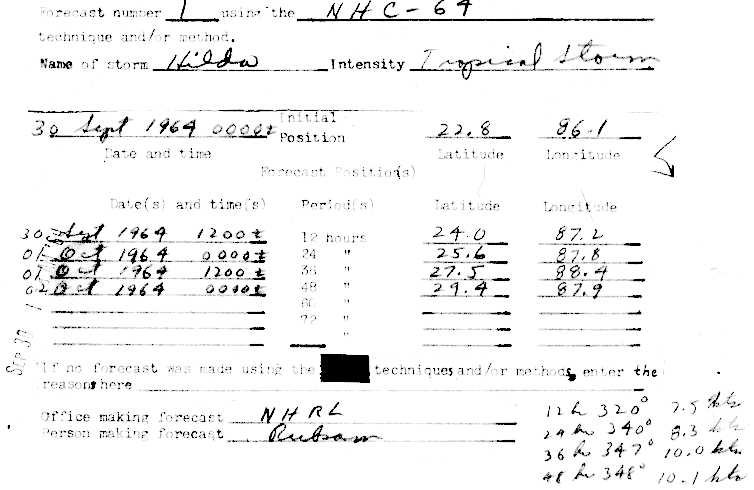 Forecast number 1 using the NHC-64
technique and/or method.
Name of storm Hilda Intensity Tropical Storm
Initial
30 Sept 1964 0000z Position 22.8 86.1
Date and time Latitude Longitude
Forecast Position(s)
Date(s) and time(s) Period(s) Latitude Longitude
30 Sept 1964 1200z 12 hours 24.0 87.2
01 Oct 1964 0000z 24 " 25.6 87.8
01 Oct 1964 1200z 36 " 27.5 88.4
02 Oct 1964 0000z 48 " 29.4 87.9
60 "
72 "
"
SEP 30
If no forecast was made using the techniques and/or methods, enter the
reasons here
Office making forecast NHRL
Person making forecast
12 h 320° 7.5 kts
24 hr 340° 8.3 kts
36 hr 347° 10.0 kts
48 hr 348° 10.1 kts